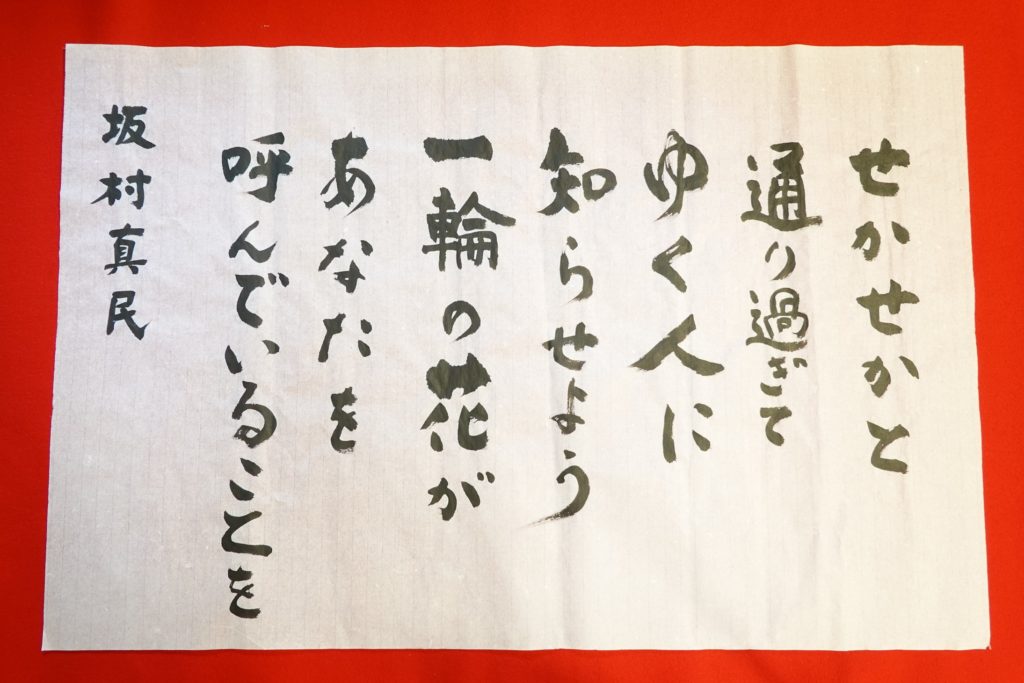 せかせかと
通り過ぎて
ゆく人に
知らせよう
一輪の花が
あなたを
呼んでいることを
坂村真民